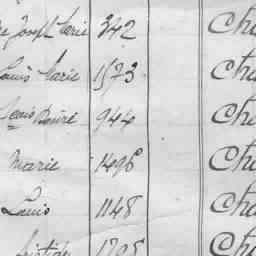 Joseph Marie 342 Cha
Louis Marie 1573 Cha
Louis Désiré 944 Cha
Marie 1496 Cha
Louis 1148 Cha
Aristide Cha